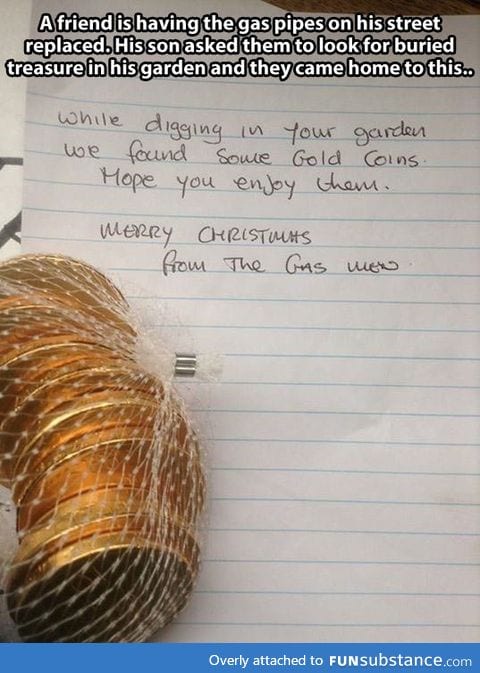 A friend is having the gas pipes on his street
replaced. His son asked them to look for buried
treasure in his garden and they came home to this..
While digging in your garden
we found some Gold Coins.
Hope you enjoy them.
MERRY CHRISTMAS
from The Gas men.
Overly attached to FUNSubstance.com